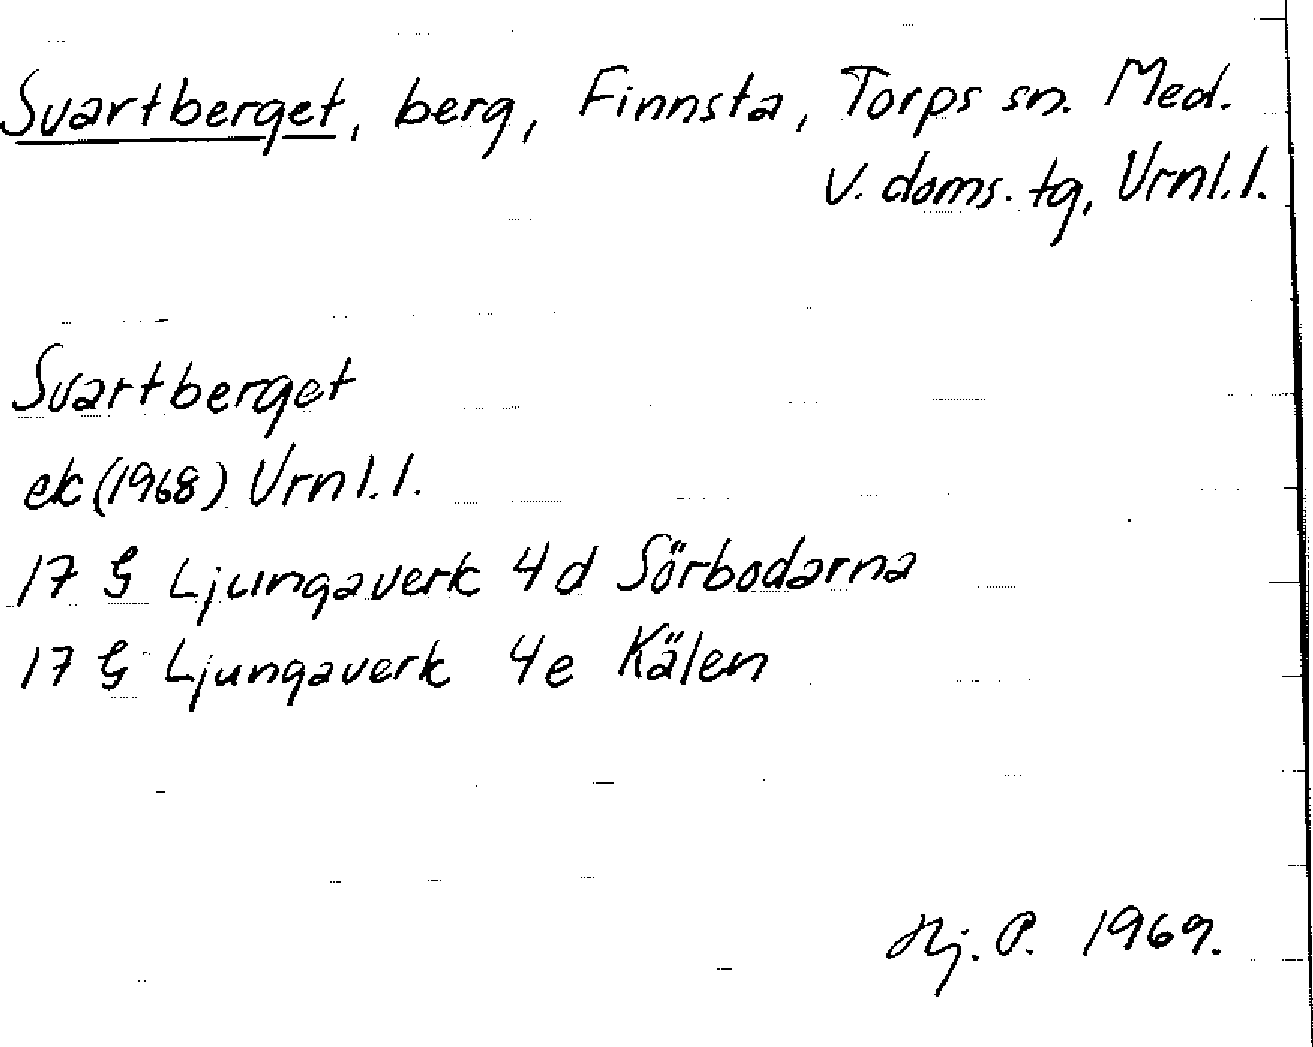 Svartberget, berg, Finnsta, Torps sn. Med.
V. doms. tg, Vrnl.l.
Svartberget
ek (1968) Vrnl.l.
17 G Ljungaverk 4d Sörbodarna
17 G Ljungaverk 4e Kälen
Hj. P. 1969.